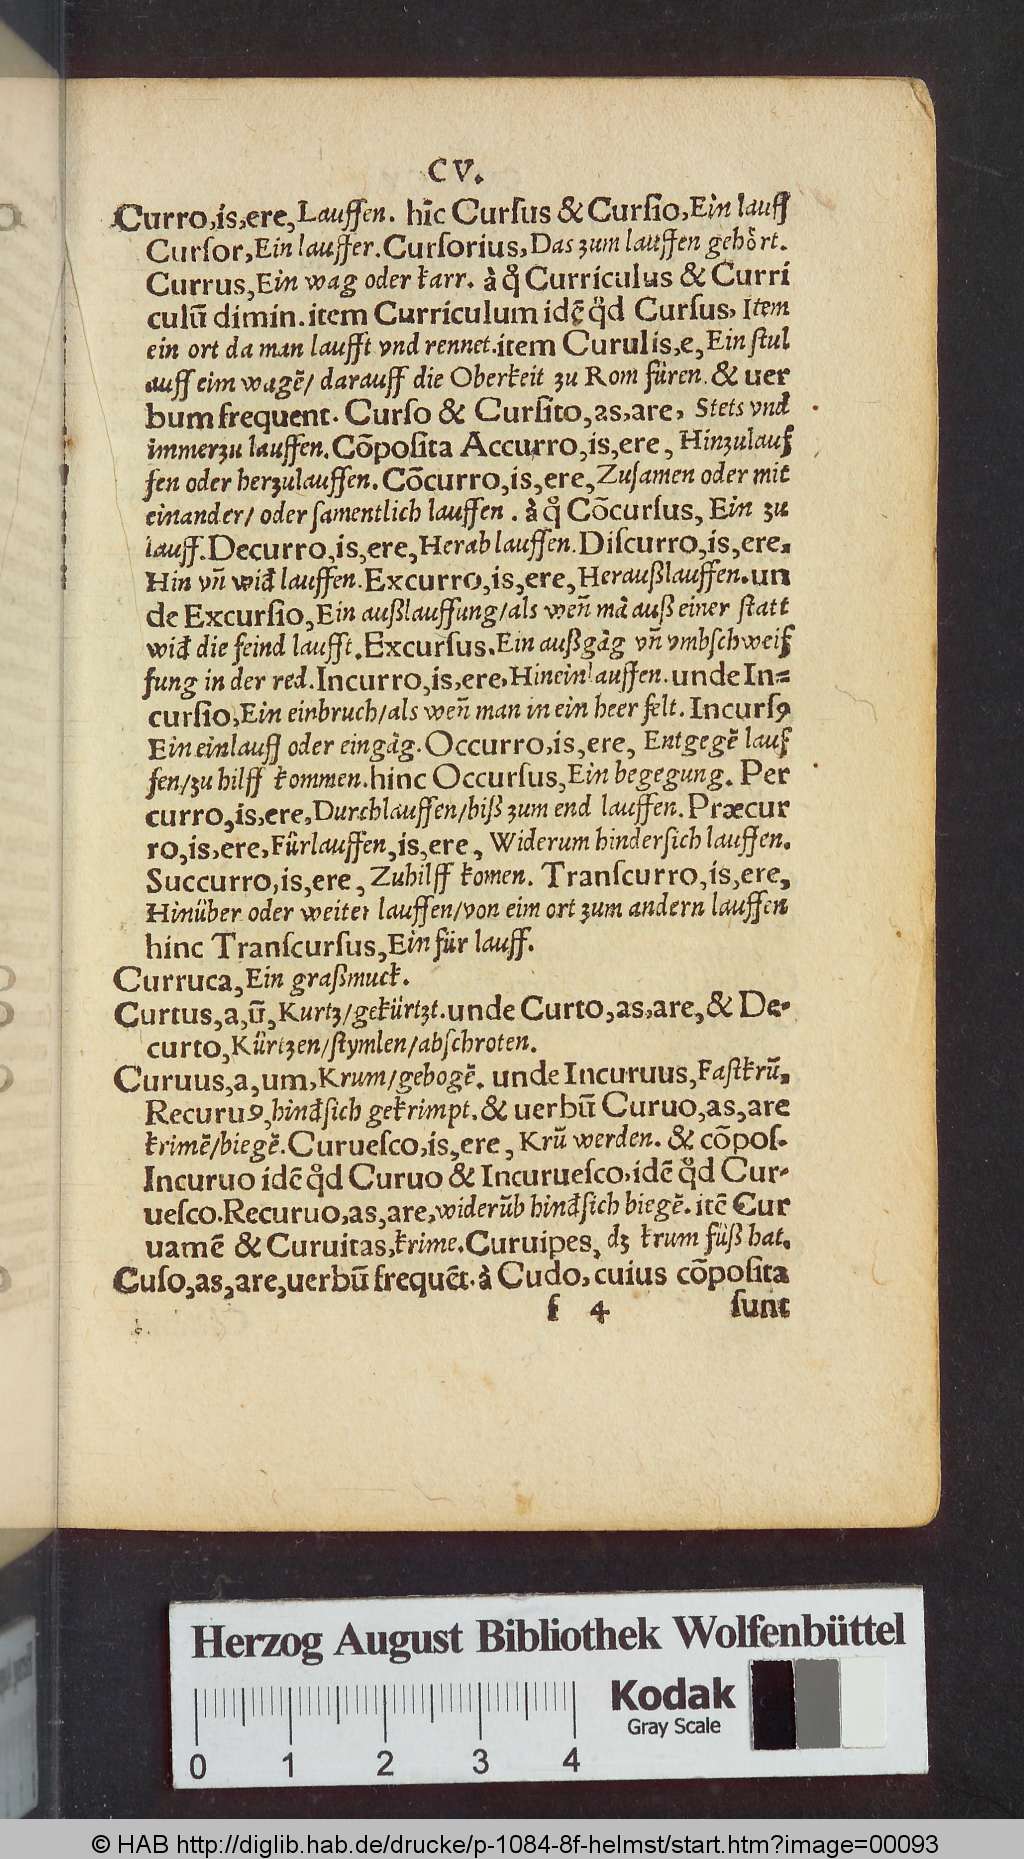 CV.
Curro,is,ere,Lauffen. hic Cursus & Cursio,Ein lauff
Cursor,Ein lauffer.Cursorius,Das zum lauffen gehoͤrt.
Currus,Ein wag oder karr. à qͦ Curriculus & Curri
culū dimin.item Curriculum idē qͦd Cursus, Item
ein ort da man laufft vnd rennet.item Curulis,e,Ein stul
auff eim wagē/ darauff die Oberkeit zu Rom füren.& uer
bum frequent. Curso & Cursito,as,are, Stets vnd
immerzu lauffen.Cōposita Accurro,is,ere, Hinzulauf
fen oder herzulauffen.Cōcurro,is,ere,Zusamen oder mit
einander/ oder samentlich lauffen . à qͦ Cōcursus, Ein zu
lauff.Decurro,is,ere,Herab lauffen.Discurro,is,ere,
Hin vñ wid lauffen.Excurro,is,ere,Heraußlauffen.un
de Excursio,Ein außlauffung/als weñ mā auß einer statt
wid die feind laufft.Excursus.Ein außgāg vñ vmbschweif
fung in der red.Incurro,is,ere,Hinein lauffen.unde In=
cursio,Ein einbruch/als weñ man in ein heer felt.Incursꝰ
Ein einlauff oder eingāg.Occurro,is,ere, Entgegē lauf
fen/zu hilff kommen.hinc Occursus,Ein begegung. Per
curro,is,ere,Durchlauffen/biß zum end lauffen.Præcur
ro,is,ere,Fürlauffen,is,ere, Widerum hindersich lauffen.
Succurro,is,ere,Zuhilff komen. Transcurro,is,ere,
Hinüber oder weiter lauffen/von eim ort zum andern lauffen
hinc Transcursus,Ein für lauff.
Curruca,Ein graßmuck.
Curtus,a,ū,Kurtz/gekürtzt.unde Curto,as,are,& De-
curto,Kürtzen/stymlen/abschroten.
Curuus,a,um,Krum/gebogē. unde Incuruus,Fastkrū,
Recuruꝰ,hindsich gekrimpt.& uerbū Curuo,as,are
krimē/biegē.Curuesco,is,ere, Krū werden. & cōpos.
Incuruo idē qͦd Curuo & Incuruesco,idē qͦd Cur-
uesco.Recuruo,as,are,widerūb hindsich biegē. itē Cur
uamē & Curuitas,krime.Curuipes, dz krum füß hat.
Cuso,as,are,uerbū frequēt.à Cudo,cuius cōposita
f 4 sunt
Herzog August Bibliothek Wolfenbüttel
Kodak
Gray Scale
0 1 2 3 4
© HAB http://diglib.hab.de/drucke/p-1084-8f-helmst/start.htm?image=00093